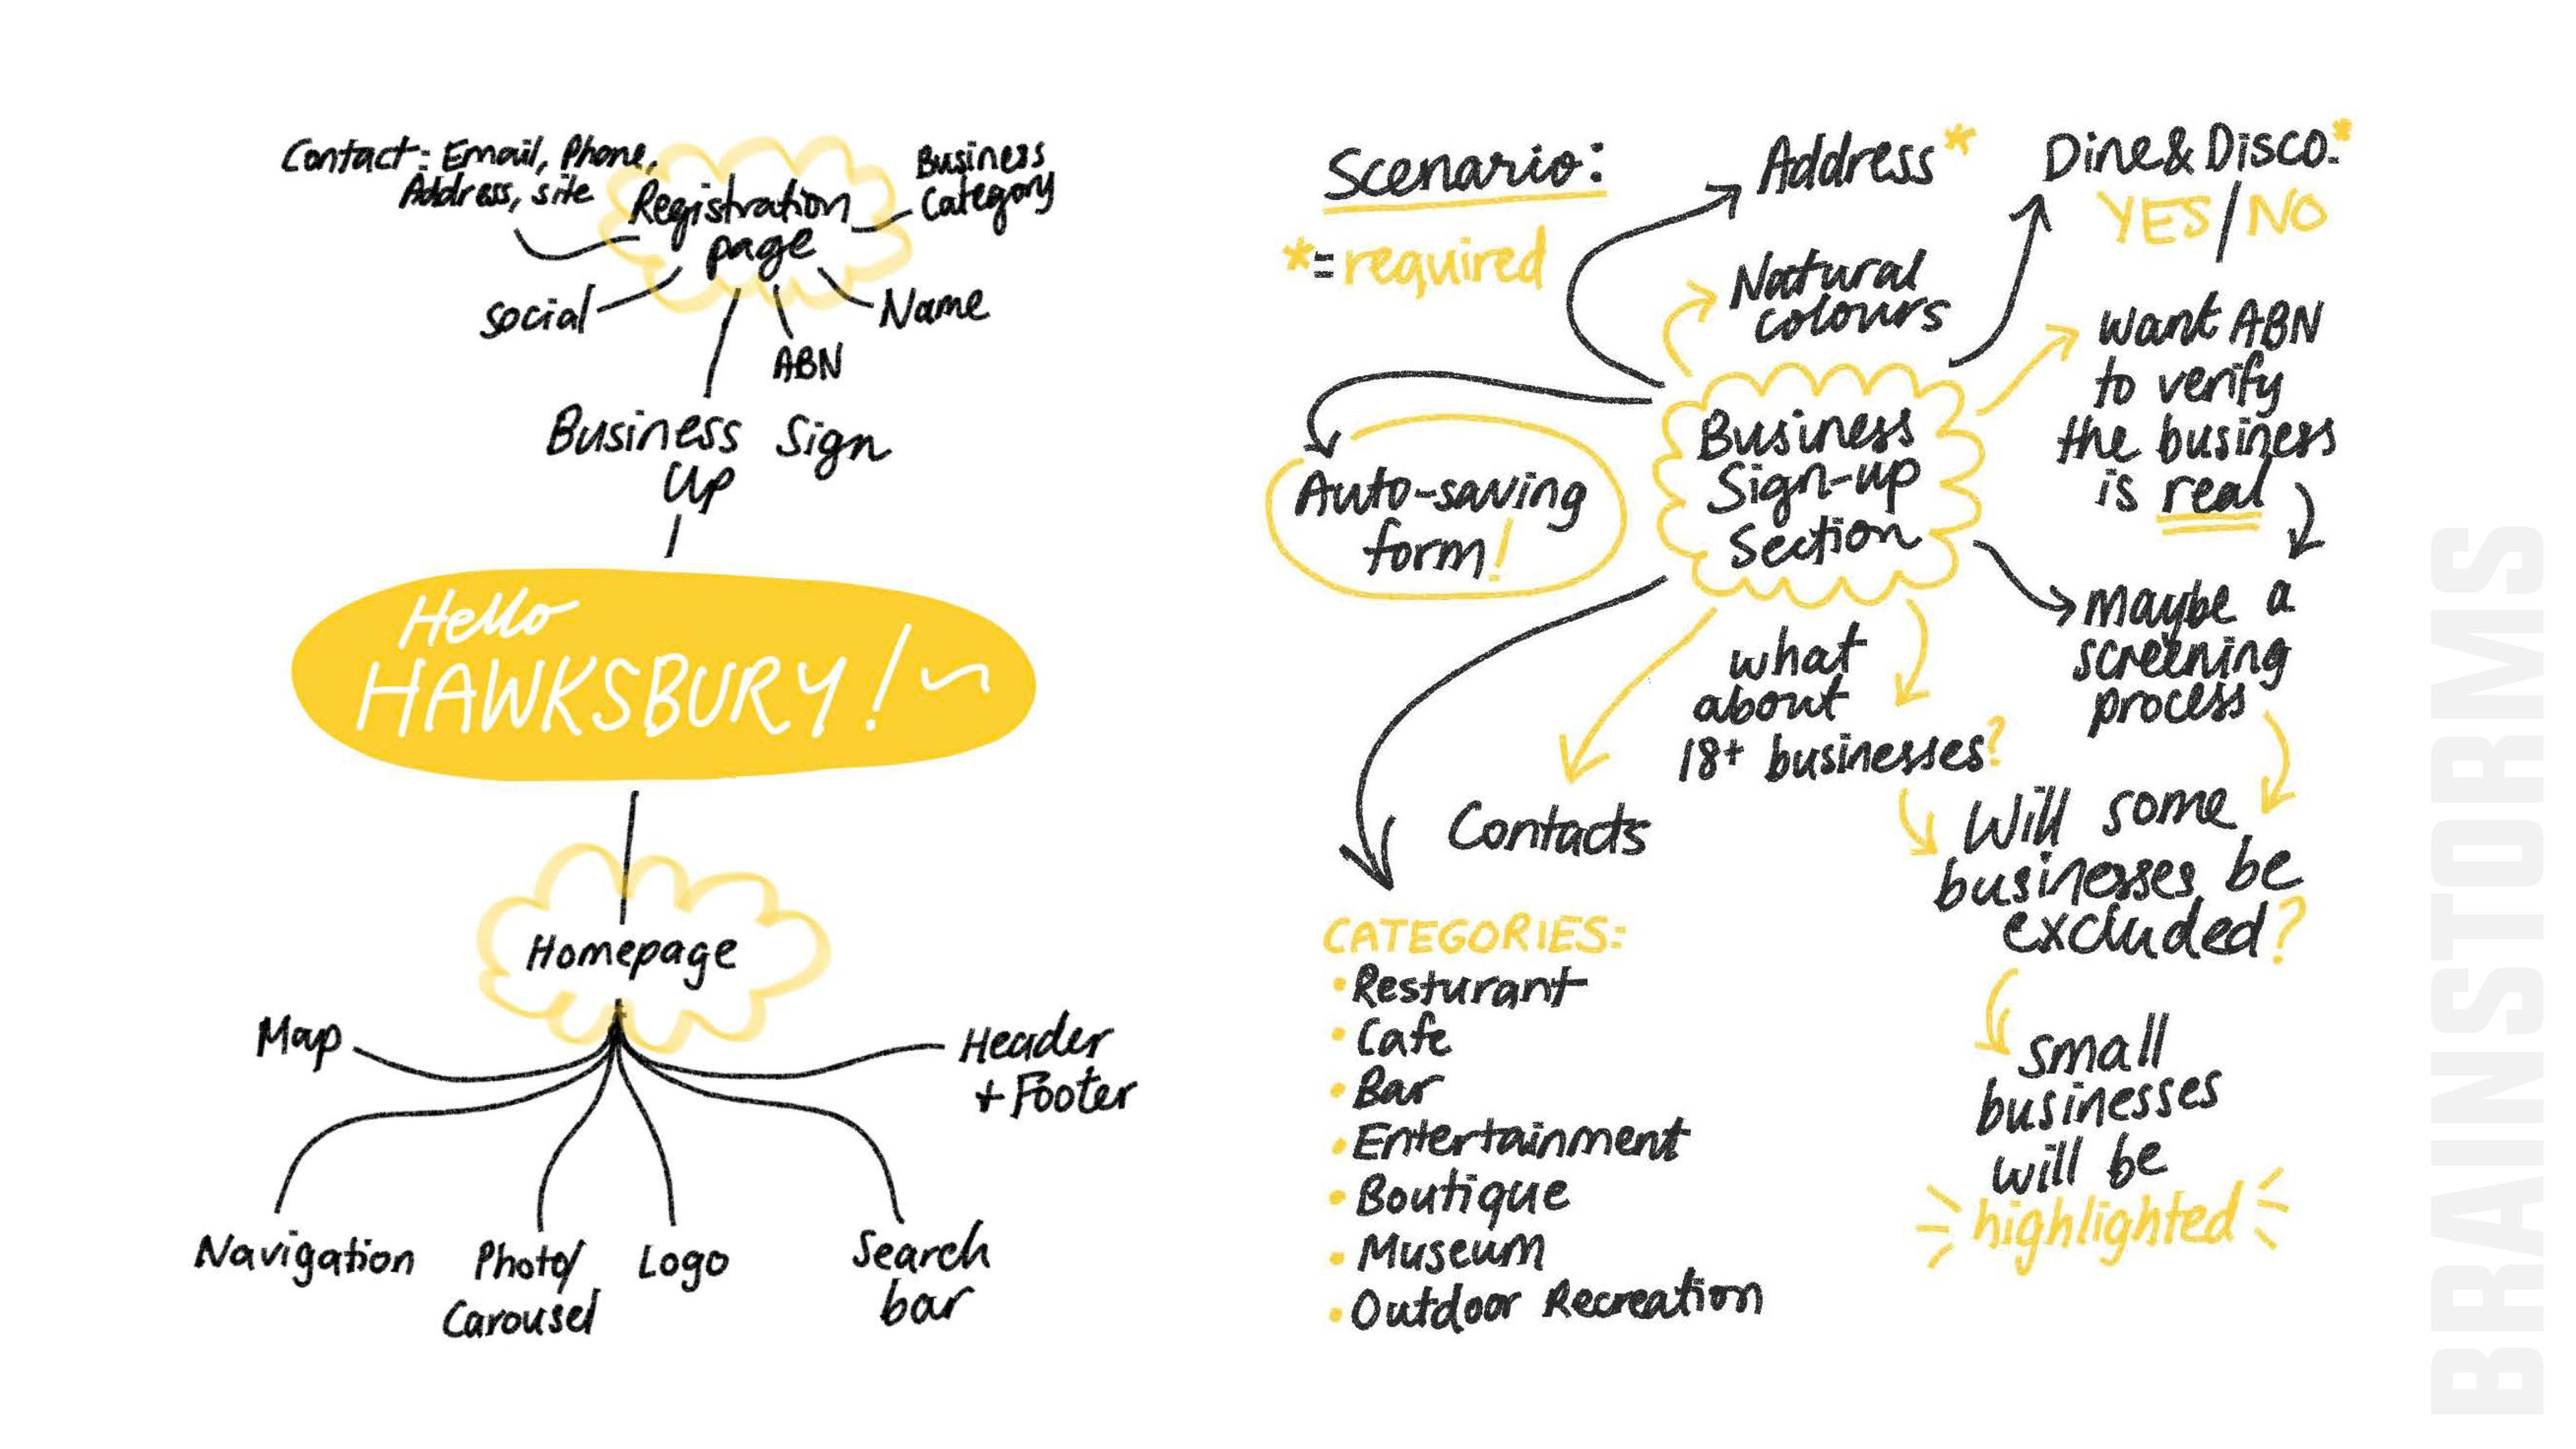 Contact: Email, Phone,
Address, site
Registration
page
Business
Category
social
Name
ABN
Business Sign
Up
Hello
HAWKSBURY!~
Homepage
Map
Header
+ Footer
Navigation
Photo/
Carousel
Logo
Search
bar
Scenario:
*= required
Address*
Dine & Disco.*
YES/NO
Natural
colours
want ABN
to verify
the business
is real
Auto-saving
form!
Business
Sign-up
Section
maybe a
screening
process
what
about
18+ businesses?
Contacts
Will some
businesses be
excluded?
small
businesses
will be
highlighted
CATEGORIES:
• Resturant
• Cafe
• Bar
• Entertainment
• Boutique
• Museum
• Outdoor Recreation
BRAINSTORMS